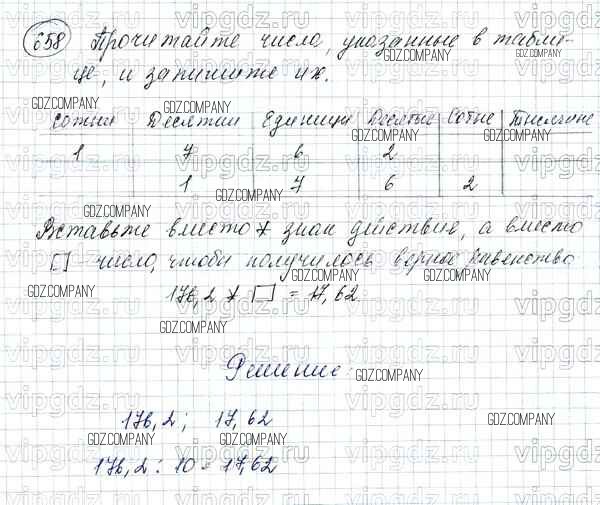 658 Прочитайте числа, указанные в табли-
це, и запишите их.
Сотни Десятки Единицы Десятые Сотые Тысячные
1 7 6 2
1 7 6 2
Вставьте вместо * знак действия, а вместо
□ число, чтобы получилось верное равенство
176,2 * □ = 17,62
Решение:
176,2; 17,62
176,2 : 10 = 17,62
GDZ.COMPANY
vipgdz.ru